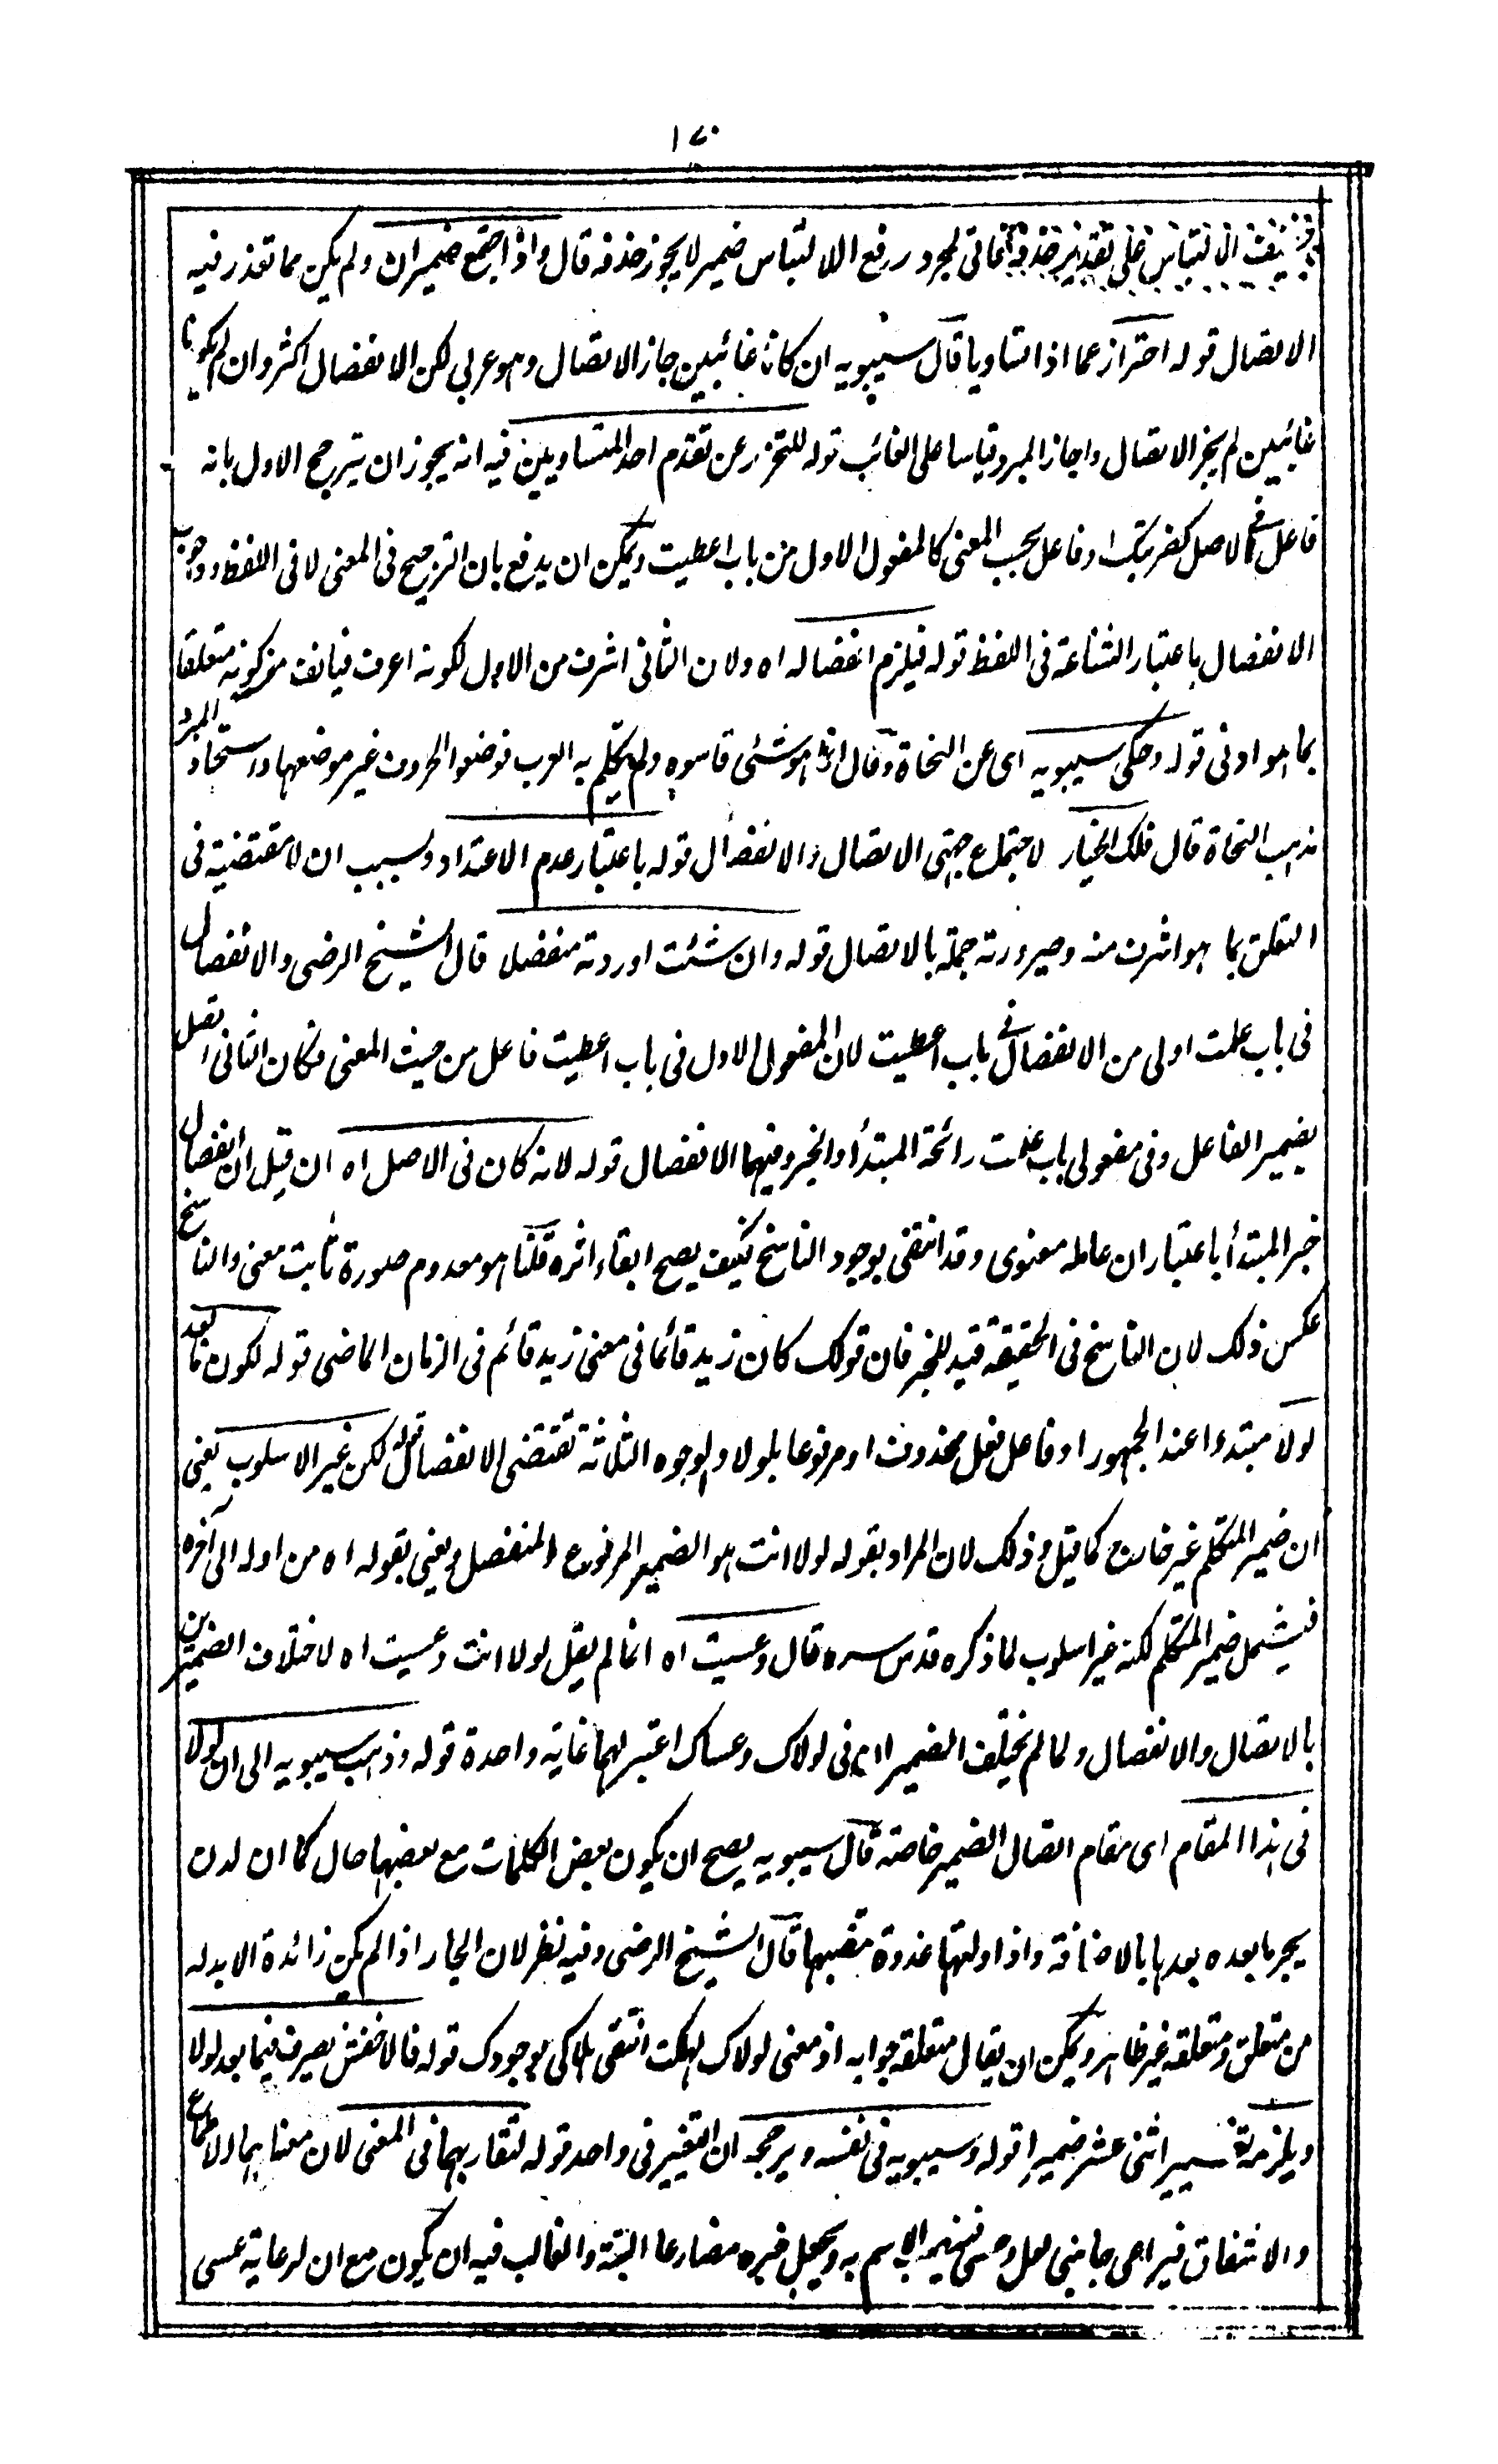 ١٧٠
الالتباس على تقدير حذفه فما اتى لمجرد رفع الالتباس ضمير لا يجوز حذفه قال واذا اجتمع ضميران ولم يكن مما تعذر فيه
الاتصال قوله احتراز عما اذا تساويا قال سيبويه ان كانا غائبين جاز الاتصال وهو عربى لكن الانفصال اكثر وان لم يكونا
غائبين لم يجز الاتصال واجاز المبرد قياسا على الغائب قوله للتحرز عن تقدم احد المتساويين فيه انه يجوز ان يترجح الاول بانه
فاعل فى الاصل كضربتك او فاعل بحسب المعنى كالمفعول الاول من باب اعطيت ويمكن ان يدفع بان الترجيح فى المعنى لا فى اللفظ ووجوب
الانفصال باعتبار الشناعة فى اللفظ قوله فيلزم انفصاله اه ولان الثانى اشرف من الاول لكونه اعرف فيانف من كونه متعلقا
بما هو ادنى قوله وحكى سيبويه اى عن النحاة وقال انما هو شئى قاسوه ولم يتكلم به العرب فوضعوا الحروف غير موضعها واستجاد المبرد
مذهب النحاة قال فلك الخيار لاجتماع جهتى الاتصال والانفصال قوله باعتبار عدم الاعتداد وبسبب ان لا مقتضية فى
التعلق بما هو اشرف منه وصيرورته جملة بالاتصال قوله وان شئت اوردته منفصلا قال الشيخ الرضى والانفصال
فى باب علمت اولى من الانفصال فى باب اعطيت لان المفعول الاول فى باب اعطيت فاعل من حيث المعنى فكان الثانى اتصل
بضمير الفاعل وفى مفعولى باب علمت رائحة المبتدأ والخبر وفيهما الانفصال قوله لانه كان فى الاصل اه ان قيل ان انفصال
خبر المبتدأ باعتبار ان عامله معنوى وقد انتفى بوجود الناسخ فكيف يصح ابقاء اثره قلنا هو معدوم صورة ثابت معنى والناسخ
عكس ذلك لان الناسخ فى الحقيقة قيد للخبر فان قولك كان زيد قائما فى معنى زيد قائم فى الزمان الماضى قوله لكون ما بعد
لولا مبتدءا عند الجمهور او فاعل فعل محذوف او مرفوعا بلولا والوجوه الثلاثة تقتضى الانفصال قوله لكن غير الاسلوب يعنى
ان ضمير المتكلم غير خارج كما قيل وذلك لان المراد بقوله لولا انت هو الضمير المرفوع المنفصل ويعنى بقوله اه من اوله الى آخره
فيشمل ضمير المتكلم لكنه غير اسلوب لما ذكره قدس سره قال وعسيت اه انما لم يقل لولا انت وعسيت اه لاختلاف الضميرين
بالاتصال والانفصال ولما لم يختلف الضميران فى لولاك وعساك اعتبر لهما غاية واحدة قوله وذهب سيبويه الى ان لولا
فى هذا المقام اى مقام اتصال الضمير خاصة قال سيبويه يصح ان يكون بعض الكلمات مع بعضها حال كما ان لدن
يجر ما بعده بعدها بالاضافة واذا ولتها غدوة تنصبها قال الشيخ الرضى وفيه نظر لان الجار اذا لم يكن زائدة لا بد له
من متعلق ومتعلقه غير ظاهر ويمكن ان يقال متعلقه جوابه اذ معنى لولاك لهلكت انتفى هلاكى بوجودك قوله فالاخفش تصرف فيما بعد لولا
ويلزمه تغيير اثنى عشر ضميرا قوله وسيبويه فى نفسه ويرجحه ان التغيير فى واحد قوله لتقاربهما فى المعنى لان معناهما الاطماع
والاشفاق فيراعى جانبى لعل وعسى فينصب الاسم به ويجعل خبره مضارعا البتة والغالب فيه ان يكون مع ان لرعاية عسى